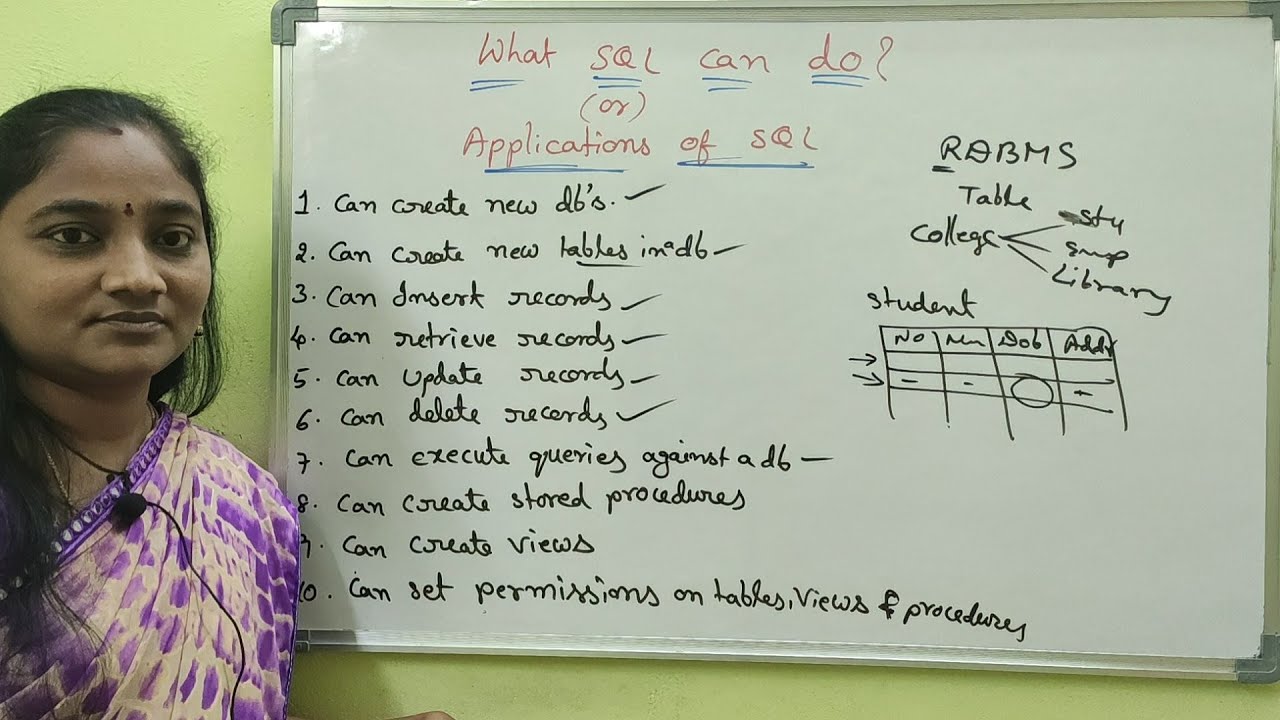 What SQL can do?
(or)
Applications of SQL
1. Can create new db's.
2. Can create new tables in a db
3. Can Insert records
4. Can retrieve records
5. Can Update records
6. Can delete records
7. Can execute queries against a db
8. Can create stored procedures
9. Can create views
10. Can set permissions on tables, views & procedures
RDBMS
Table
College
stu
emp
Library
Student
No Nm Dob Addr